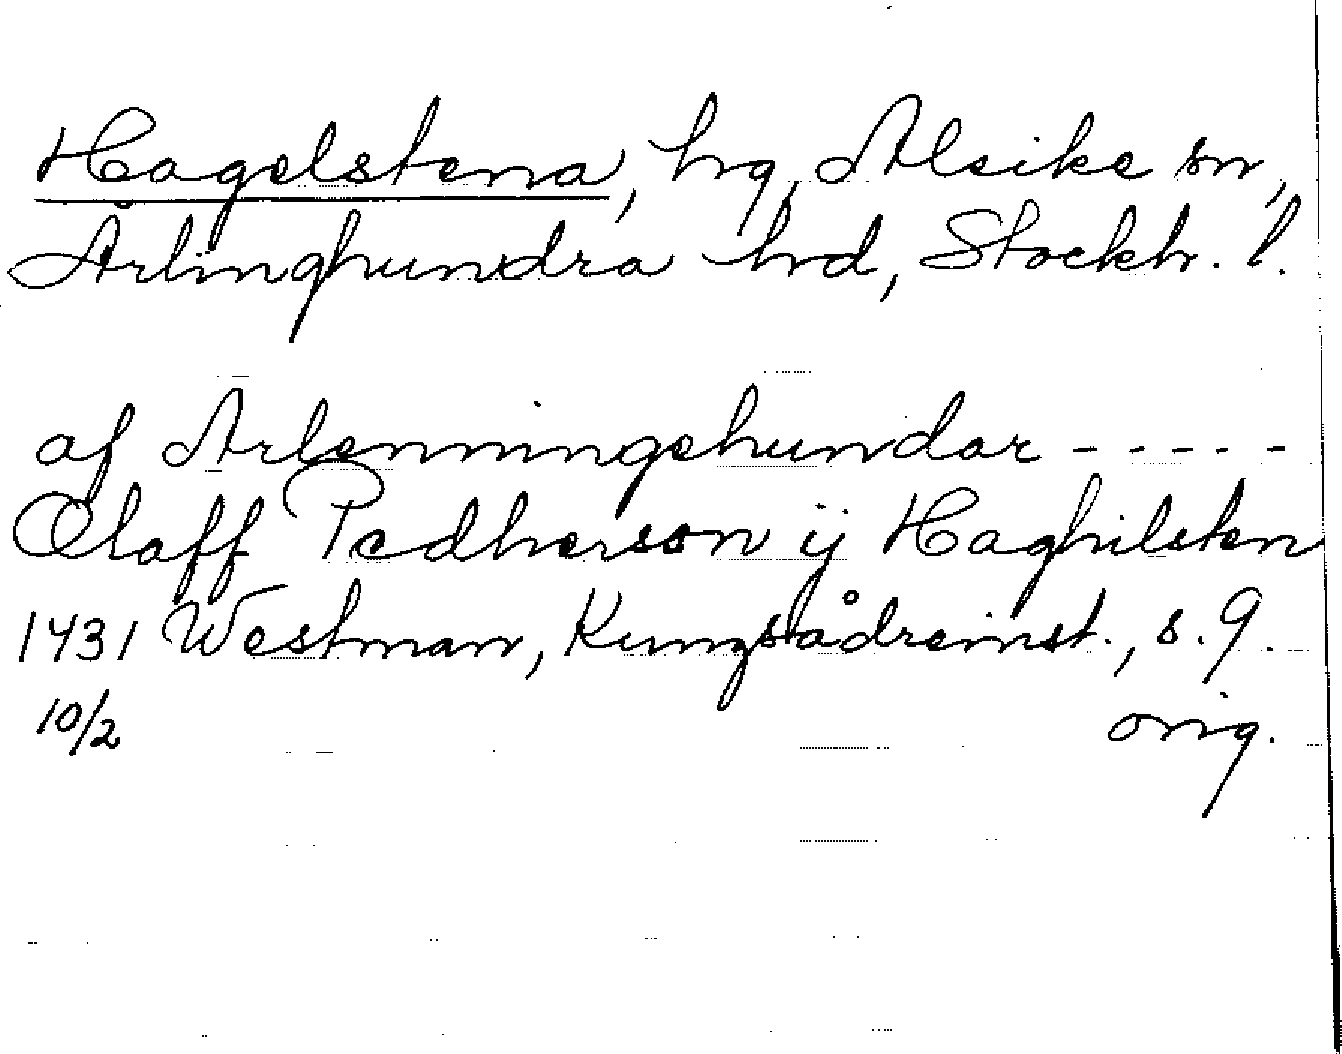 Hagelstena, hg, Alsike sn,
Ärlinghundra hrd, Stockh. l.
af Arlenningehundar - - - - -
Olaff Pedherson ij Haghilsten
1431 Westman, Kungsådreinst., s. 9.
10/2 orig.